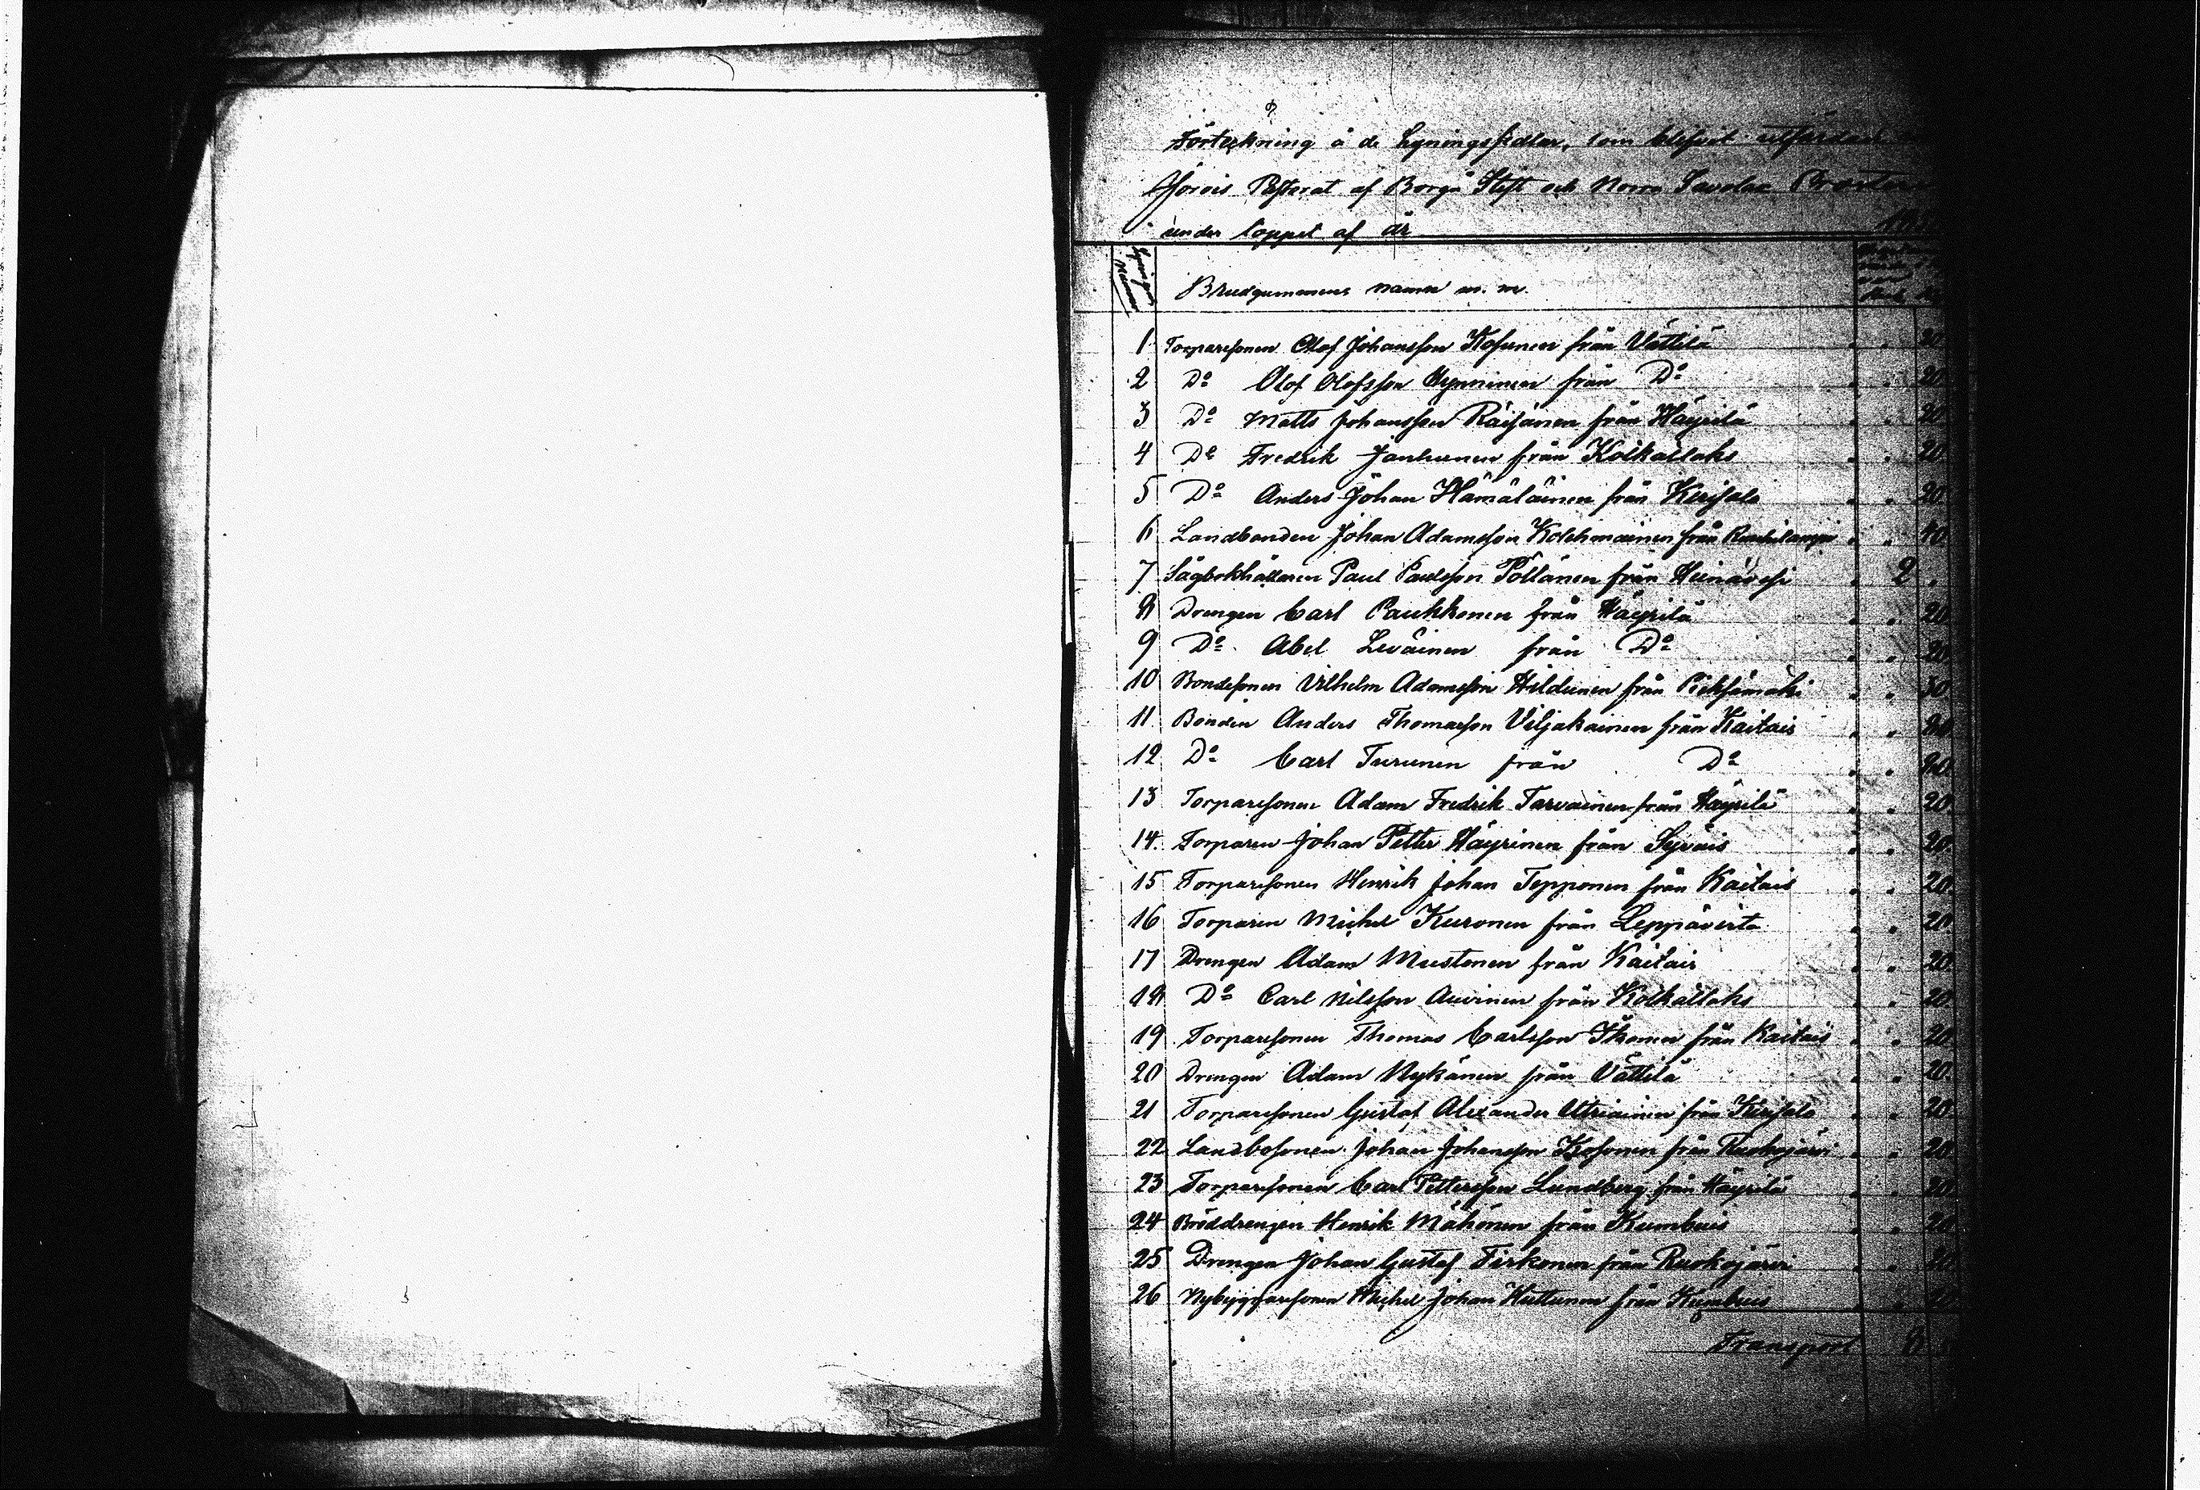 Förtekning å de Lysningssedlar, som blifvit utfärdade
Jorois Pastorat af Borgå Stift och Norra Savolax Prosteri
under loppet af år
Lysnings Nummer
Brudgummens namn m. m.
1 Torparesonen Olof Johansson Kosunen från Vättilä " " 20
2 Do Olof Olofsson Hynninen från Do " " 20
3 Do Matts Johansson Räisänen från Häyrilä " " 20
4 Do Fredrik Janhunen från Kolkatlaks " " 20
5 Do Anders Johan Hämäläinen från Kerisalo " " 20
6 Landbonden Johan Adamsson Kolehmainen från " " 40
7 Sågbokhållaren Paul Paulsson Pöllänen från Heinävesi " 2 "
8 Drengen Carl Paukkonen från Häyrilä " " 20
9 Do Abel Leväinen från Do " " 20
10 Bondesonen Vilhelm Adamsson Hildunen från Pieksämäki " "
11 Bonden Anders Thomasson Viljakainen från Kaitais " "
12 Do Carl Turunen från Do " "
13 Torparesonen Adam Fredrik Tarvainen från Häyrilä " " 20
14 Torparen Johan Petter Häyrinen från Syväis " " 20
15 Torparesonen Henrik Johan Tepponen från Kaitais " " 20
16 Torparen Michel Kuronen från Leppävirta " " 20
17 Drengen Adam Mustonen från Kaitais " " 20
18 Do Carl Nilsson Auvinen från Kolkatlaks " " 20
19 Torparesonen Thomas Carlsson Ikonen från Kaitais " " 20
20 Drengen Adam Nykänen från Vättilä " " 20
21 Torparesonen Gustaf Alexander Utriainen från Kerisalo " " 20
22 Landbosonen Johan Johansson Kosonen från Ruokojärvi " " 20
23 Torparesonen Carl Pettersson Lundberg från Häyrilä " " 20
24 Henrik Mähönen från Kumbuis " " 20
25 Drengen Johan Gustaf Tirkonen från Ruokojärvi " " 20
26 Nybyggaresonen Michel Johan Huttunen från Kumbuis " "
Transport 8